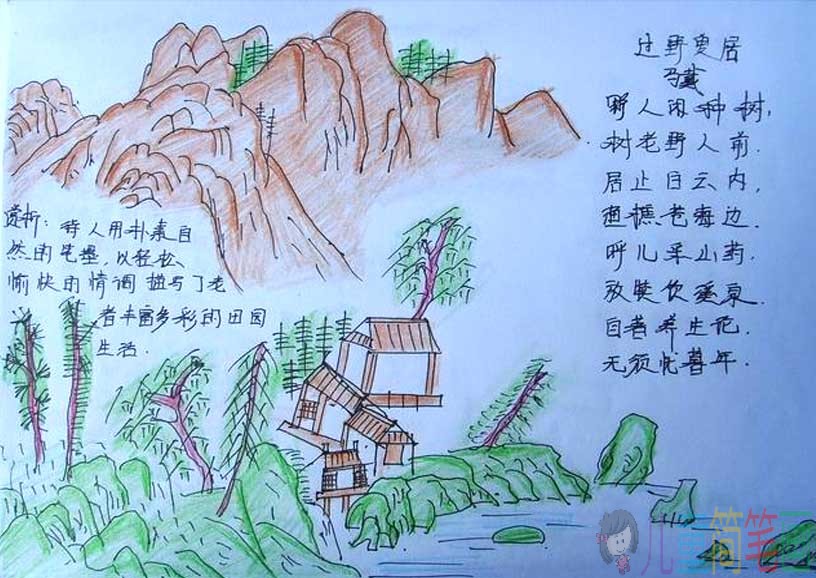 过野叟居
马戴
野人闲种树,
树老野人前.
居止白云内,
渔樵苍海边.
呼儿采山药.
放犊饮溪泉.
自著养生论.
无须忧暮年.
赏析:诗人用朴素自
然的笔墨,以轻松、
愉快的情调描写了老
者丰富多彩的田园
生活.
儿童简笔